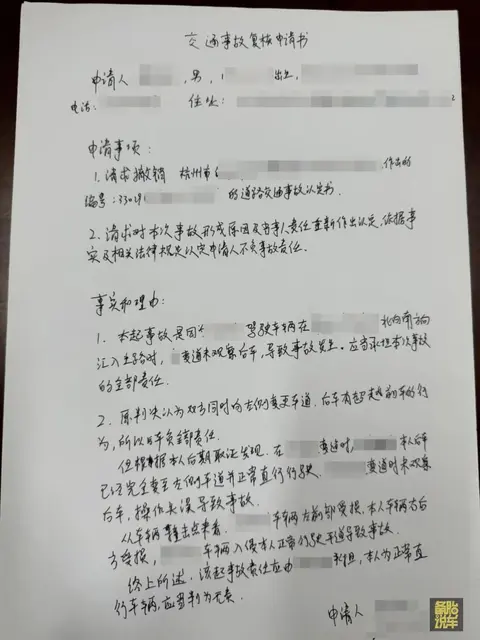 交通事故复核申请书
申请人 ,男, 出生,
电话: 住址:
申请事项:
1. 请求撤销 杭州市 作出的
编号:3301 的道路交通事故认定书。
2. 请求对本次事故形成原因及当事人责任重新作出认定,依据事
实及相关法律规定认定申请人不负事故责任。
事实和理由:
1. 本起事故是因 驾驶车辆在 北向南方向
汇入主路时, 变道未观察后车,导致事故发生。应当承担本次事故
的全部责任。
2. 原判决认为双方同时向左侧变更车道,后车有超越前车的行
为,所以后车负全部责任。
但根据本人后期取证发现,在 变道时, 本人后车
已经完全变至左侧车道并正常直行行驶, 变道时未观察
后车,操作失误导致事故。
从车辆撞击点来看, 车辆左前部受损,本人车辆右后
方受损, 车辆入侵本人正常行驶车道导致事故。
终上所述,该起事故责任应由 承担,本人为正常直
行车辆,应当判为无责。
申请人
备胎说车